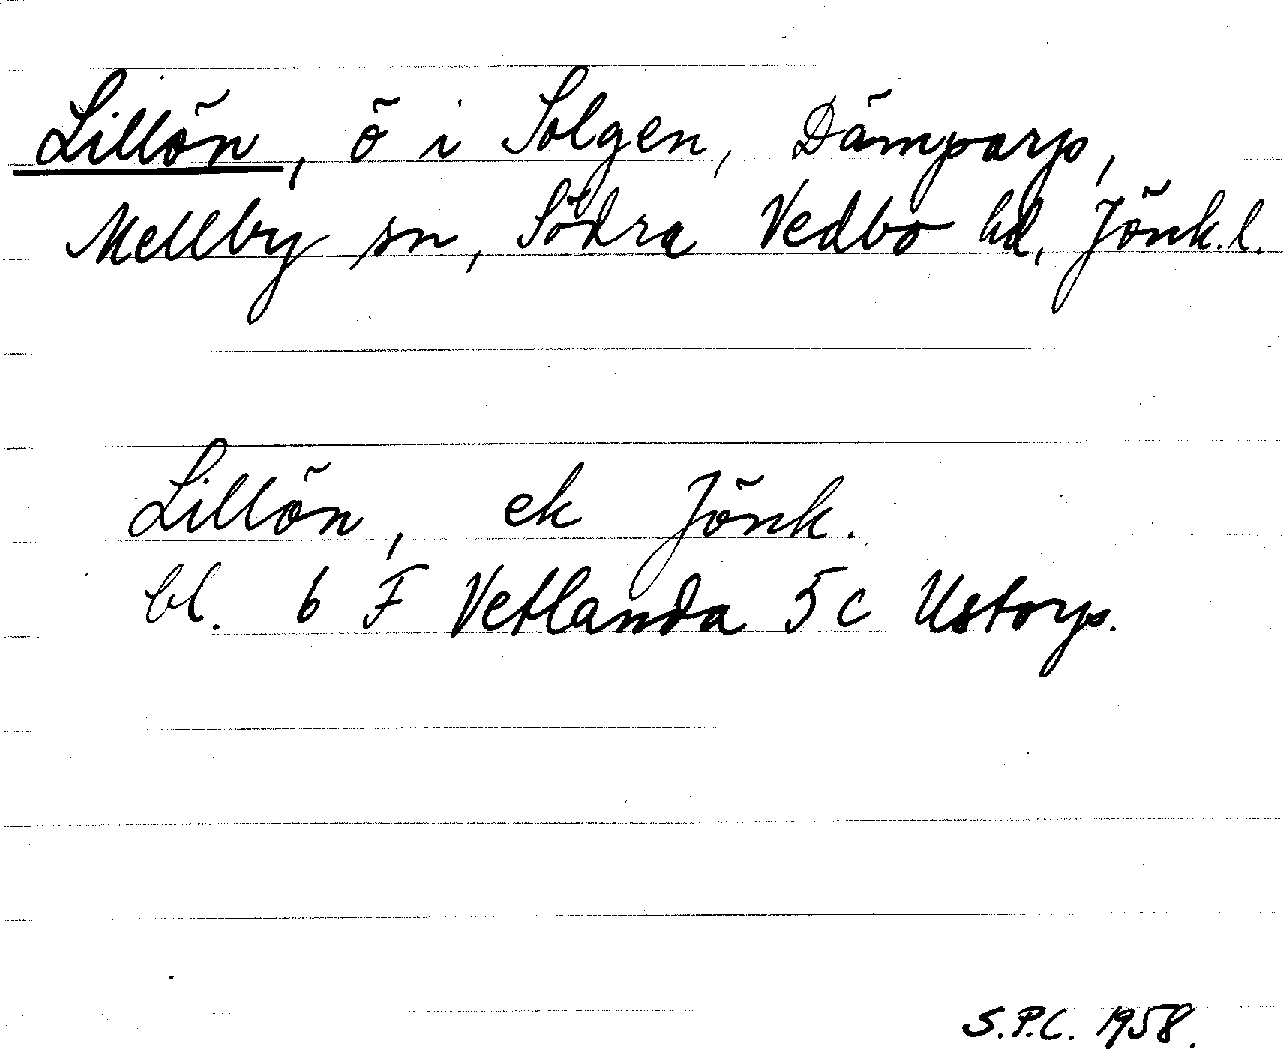 Lillön, ö i Solgen, Dämparp,
Mellby sn, Södra Vedbo hd, Jönk.l.
Lillön, ek Jönk.
bl. 6 F Vetlanda 5c Ustorp.
S.P.C. 1958.